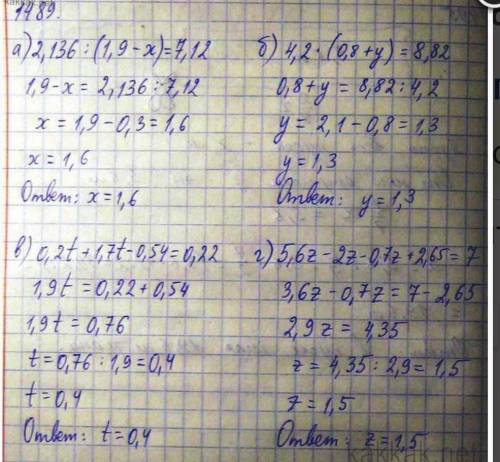 1489.
а) 2,136 : (1,9 - x) = 7,12
1,9 - x = 2,136 : 7,12
x = 1,9 - 0,3 = 1,6
x = 1,6
Ответ: x = 1,6
б) 4,2 · (0,8 + y) = 8,82
0,8 + y = 8,82 : 4,2
y = 2,1 - 0,8 = 1,3
y = 1,3
Ответ: y = 1,3
в) 0,2t + 1,7t - 0,54 = 0,22
1,9t = 0,22 + 0,54
1,9t = 0,76
t = 0,76 : 1,9 = 0,4
t = 0,4
Ответ: t = 0,4
г) 5,6z - 2z - 0,7z + 2,65 = 7
3,6z - 0,7z = 7 - 2,65
2,9z = 4,35
z = 4,35 : 2,9 = 1,5
z = 1,5
Ответ: z = 1,5